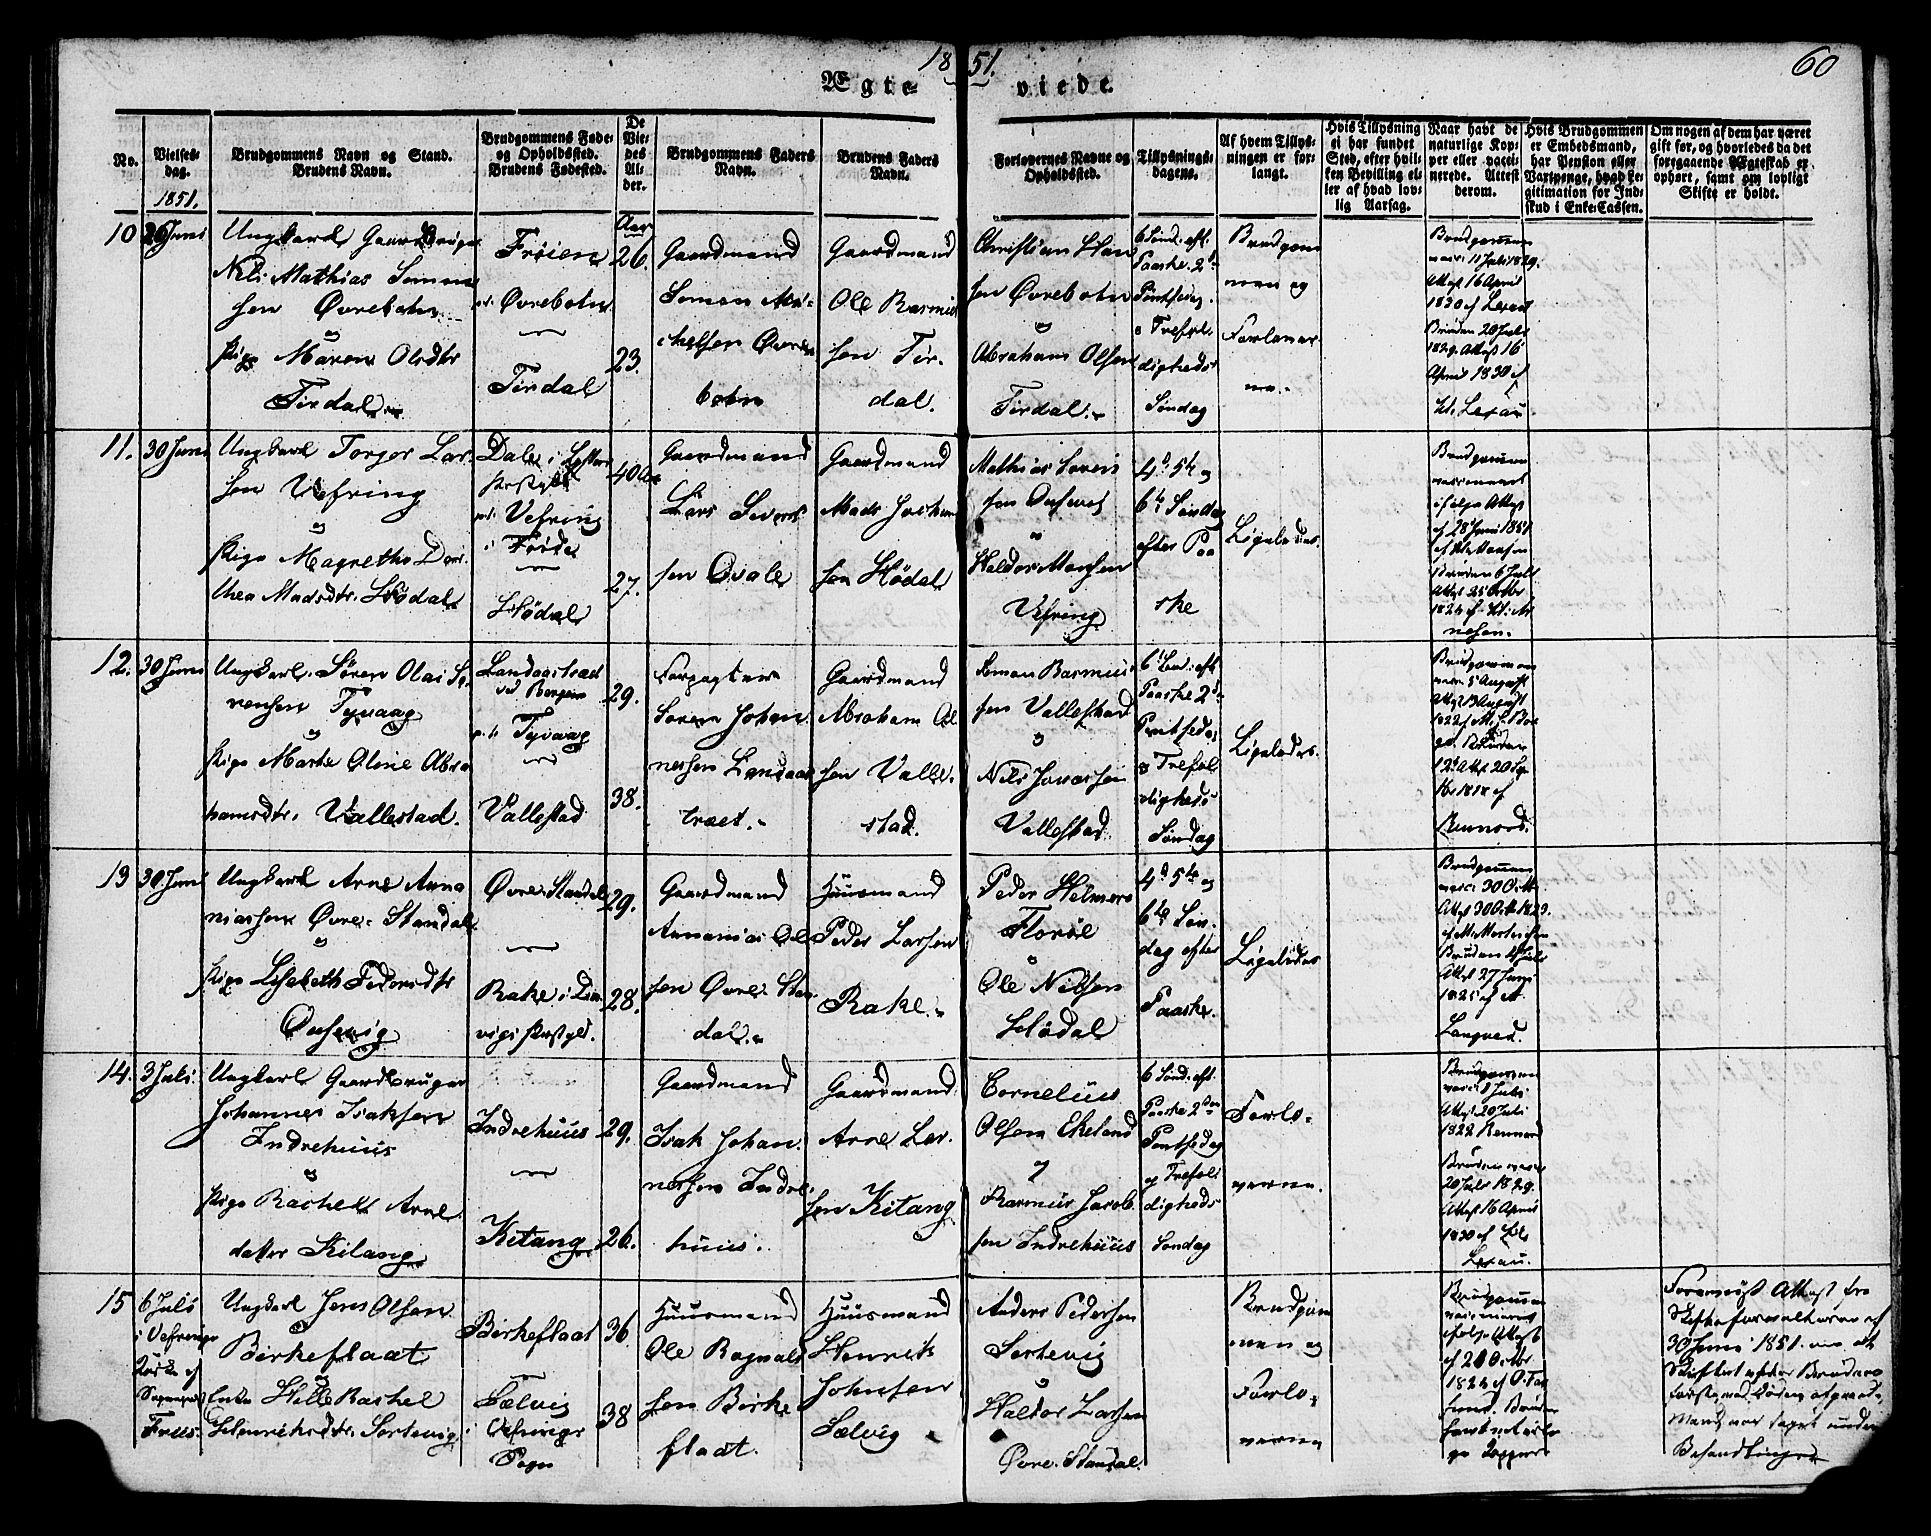 1851.
60
Ægte viede.
No.
Vielses-
dag.
1851.
Brudgommens Navn og Stand.
Brudens Navn.
Brudgommens Føde-
og Opholdssted.
Brudens Fødested.
De
Vie-
des
Al-
der.
Brudgommens Faders
Navn.
Brudens Faders
Navn.
Forlovernes Navne og
Opholdssted.
Tillysnings-
dagene.
Af hvem Tillys-
ningen er for-
langt.
Hvis Tillysning
ei har fundet
Sted, efter hvil-
ken Bevilling el-
ler af hvad lov-
lig Aarsag.
Naar havt de
naturlige Kop-
per eller vacci-
nerede. Attest
derom.
Hvis Brudgommen
er Embedsmand,
har Pension eller
Vartpenge, hvad Le-
gitimation for Ind-
skud i Enke-Cassen.
Om nogen af dem har været
gift før, og hvorledes da det
foregaaende Ægteskab er
ophørt, samt om lovligt
Skifte er holdt.
10
26 Juni
Ungkarl Gaardbruger
Nels Mathias Simon
sen Øvrebotn
og
Pige Maren Olsdtr
Tirdal
Frøien
Øvrebotn
Tirdal
Aar
26.
23.
Gaardmand
Simon Mi-
chelsen Øvre
botn
Gaardmand
Ole Rasmus
sen Tir-
dal.
Christian Han
sen Øvrebotn
og
Abraham Olsen
Tirdal.
6 Sønd. eft.
Paaske. 2d
Pintsedag
og Trefol
digheds
Søndag
Brudgom
men og
Forlover
ne.
Brudgommen
vacc. 11 Juli 1829.
Attest 16 April
1830 af Lexau
Bruden 20 Juli
1829. Attest 16
April 1830 af
Lexau.
11.
30 Juni
Ungkarl Torger Lar-
sen Vefring
og
Pige Magrethe Dor-
thea Madsdtr. Hødal
Dale i
Præstgjeld
Vefring
i Førde
Hødal
40 Aar
27.
Gaardmand
Lars Sivert
sen Qvale
Gaardmand
Mads Jochum
sen Hødal
Mathias Sivert
sen
og
Haldor Monsen
Vefring
4d 5te og
6te Søndag
efter Paa
ske
Ligeledes.
Brudgommen
vaccineret
ifølge Attest
af 28 Juni 1851
Bruden 6 Juli
Attest 25 Octbr
12.
30 Juni
Ungkarl Søren Olai Sø-
rensen Tyvaag
og
Pige Marthe Oline Abra
hamsdtr. Vallestad.
Landaastræet
ved Bergen
Tyvaag
Vallestad
29.
38.
Forpagter
Søren Johan
nessen Landaas
træet.
Gaardmand
Abraham Ol
sen Valle-
stad.
Simon Rasmus
sen Vallestad
og
Nils Jonassen
Vallestad
6 Sønd. eft.
Paaske 2d
Pintsedag
og Trefol
digheds-
Søndag
Ligeledes.
Brudgommen
vacc. 5 August
Attest 13 August
1822
Bruden
Rennord.
13
30 Juni
Ungkarl Arne Anna
niassen Øvre-Standal
og
Pige Lisabeth Pedersdtr
Øvre-Standal
Rake i Da-
vigs Præstgjeld.
29.
28.
Gaardmand
Annanias Ol
sen Øvre-Stan
dal.
Huusmand
Peder Larsen
Rake.
Peder Helmers
Florøe
og
Ole Nilsen
Hødal
4d 5te og
6te Søn
dag efter
Paaske.
Ligeledes
Brudgommen
vacc. 30 Octb.
Attest 30 Octb 1823.
Bruden
Attest 27 Juni
1825 af
Langved.
14.
3 Juli.
Ungkarl Gaardbruger
Johannes Isaksen
Indrehuus
og
Pige Rachel Arne
datter Kitang
Indrehuus
Kitang
29.
26.
Gaardmand
Isak Johan
nessen Indre
huus.
Gaardmand
Arne Lar-
sen Kitang
Cornelius
Olsen Ekeland
og
Rasmus Jacob
sen Indrehuus
6 Sønd. eft.
Paaske 2den
Pintsedag
og Trefol
digheds
Søndag
Forlo-
verne.
Brudgommen
vacc. 8 Juli
Attest 20 Juli
1822 Rennord
Bruden vacc.
20 Juli 1829.
Attest 16 April
1830 af
Lexau.
15
6 Juli
i Vefrings
Kirke af
Sognepræst
Friis.
Ungkarl Jens Olsen
Birkeflaat
og
Enke Helle Rachel
Henriksdtr. Sortevig
Birkeflaat
Sælvig
Vefrings
Sogn
36
38
Huusmand
Ole Ragnald
sen Birke
flaat.
Huusmand
Henrik
Johnsen
Sælvig
Anders Pedersen
Sortevig
og
Haldor Larsen
Øvre-Standal.
Brudgom
men og
Forlo-
verne
Brudgommen
vaccineret
ifølge Attest
af 21 Octbr
1824
Bruden
havt naturli-
ge Kopper
Foreviist Attest fra
Skifteforvalteren af
30 Juni 1851 om at
Skiftet efter Brudens
første ved Døden afgaaede
Mand var taget under
Behandling